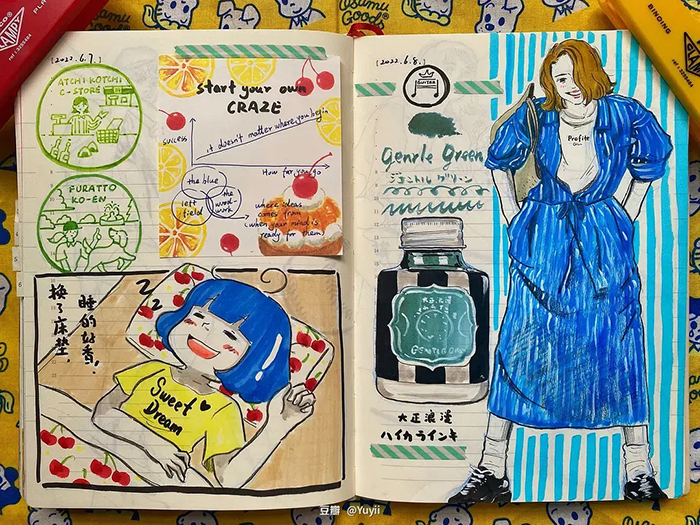 [2022.6.7.]
ATCHI KOTCHI
C-STORE
FURATTO
KO-EN
start your own
CRAZE
it doesn't matter where you begin
success
How far you go
the blue
left
field
the
wood-
work
where ideas
comes from
(when your mind is
ready for them)
换了床垫,
睡的好香,
zz
Sweet ♥
Dream
[2022.6.8.]
Gentle Green
ジェントル グリーン
大正浪漫
大正浪漫
ハイカラインキ
Profile
BINDING
Good!
豆瓣 @Yuyii